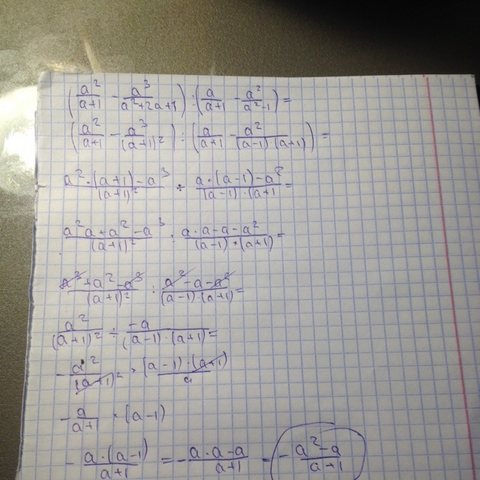 (a²/(a+1) - a³/(a²+2a+1)) : (a/(a+1) - a²/(a²-1)) =
(a²/(a+1) - a³/(a+1)²) : (a/(a+1) - a²/((a-1)·(a+1))) =
(a²·(a+1)-a³)/(a+1)² ÷ (a·(a-1)-a²)/((a-1)·(a+1) =
(a²a+a²-a³)/(a+1)² : (a·a-a-a²)/((a-1)·(a+1) =
(a³+a²-a³)/(a+1)² : (a²-a-a²)/((a-1)·(a+1) =
a²/(a+1)² ÷ -a/((a-1)·(a+1) =
-a²/(a+1)² · ((a-1)·(a+1))/a
-a/(a+1) · (a-1)
-(a·(a-1))/(a+1) = -(a·a-a)/(a+1) = -(a²-a)/(a+1)